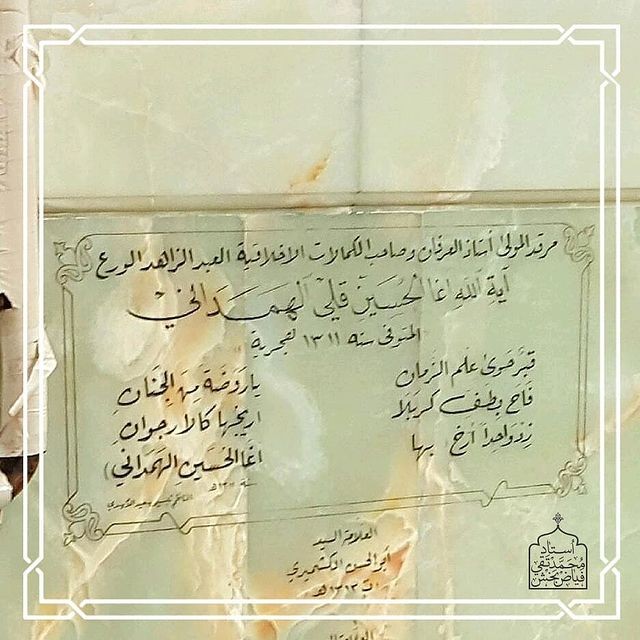 مرقد المولى أستاذ العرفان وصاحب الكمالات الاخلاقية العبد الزاهد الورع
آية الله اغا الحسين قلي الهمداني
المتوفى سنه ١٣١١ هجرية
قبر حوى علم الزمان يا روضة من الجنان
فاح بطف كربلا اريجها كالارجوان
زد واحدا أرخ بها (اغا الحسين الهمداني)
سنة ١٣١١هـ
العلامة السيد
أبو الحسن الكشميري
ت ١٣١٣هـ
استاد
محمد تقی
فیاض بخش